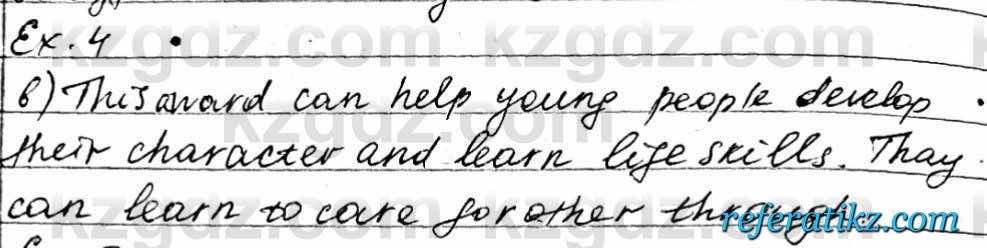 Ex. 4
в) This award can help young people develop
their character and learn life skills. Thay
can learn to care for other through
kzgdz.com
kzgdz.com
referatikz.com